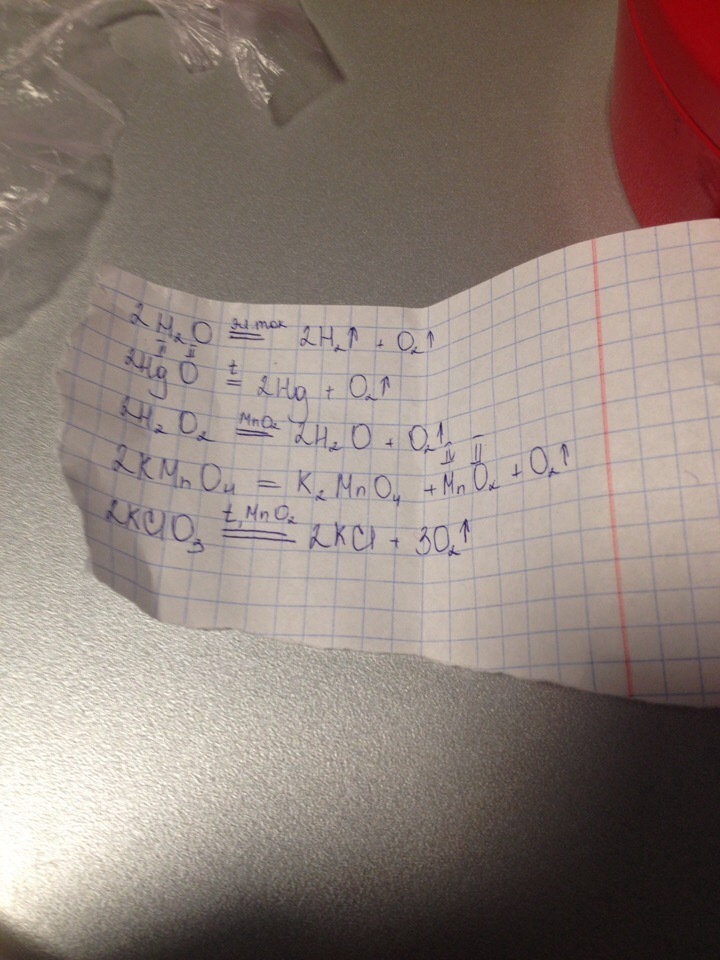 2H₂O =эл.ток= 2H₂↑ + O₂↑
2HgO =t= 2Hg + O₂↑ (II II)
2H₂O₂ =MnO₂= 2H₂O + O₂↑
2KMnO₄ = K₂MnO₄ + MnO₂ + O₂↑ (IV II)
2KClO₃ =t, MnO₂= 2KCl + 3O₂↑